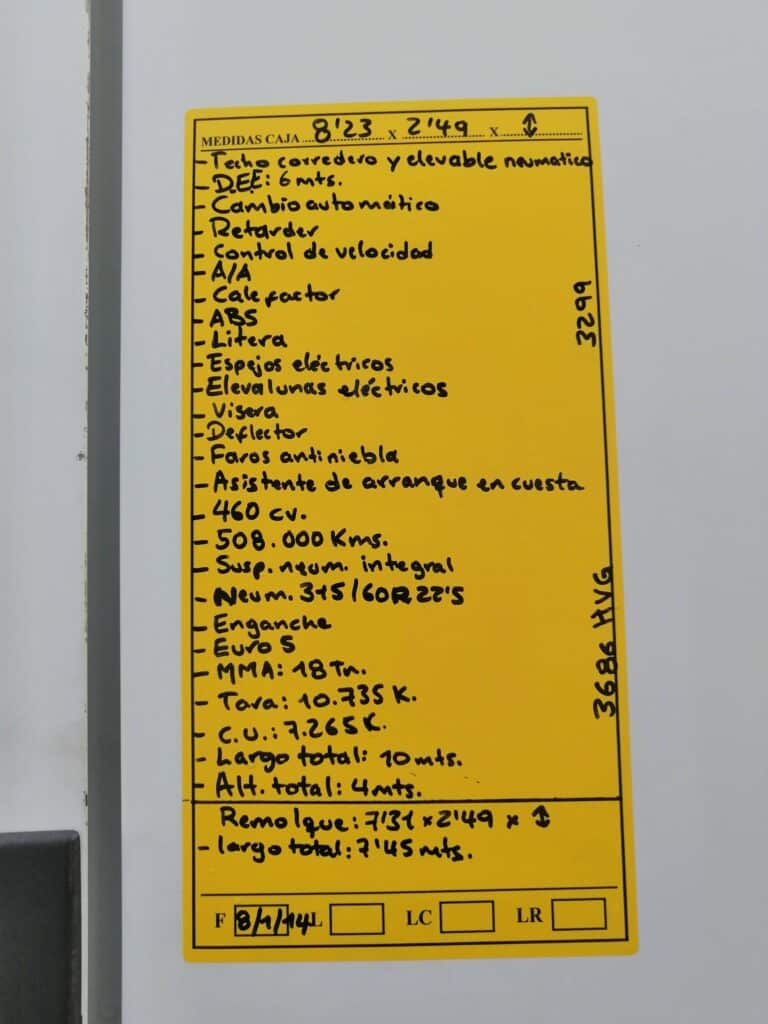 MEDIDAS CAJA 8'23 x 2'49 x ↕
- Techo corredero y elevable neumatico
- D.E.E: 6 mts.
- Cambio automático
- Retarder
- Control de velocidad
- A/A
- Calefactor
- ABS
- Litera
- Espejos eléctricos
- Elevalunas eléctricos
- Visera
- Deflector
- Faros antiniebla
- Asistente de arranque en cuesta
- 460 cv.
- 508.000 Kms.
- Susp. neum. integral
- Neum. 315/60R22'5
- Enganche
- Euro 5
- MMA: 18 Tn.
- Tara: 10.735 K.
- C.U.: 7.265 K.
- Largo total: 10 mts.
- Alt. total: 4 mts.
3299
3686 HVG
Remolque: 7'31 x 2'49 x ↕
- largo total: 7'45 mts.
F 8/1/14 L LC LR